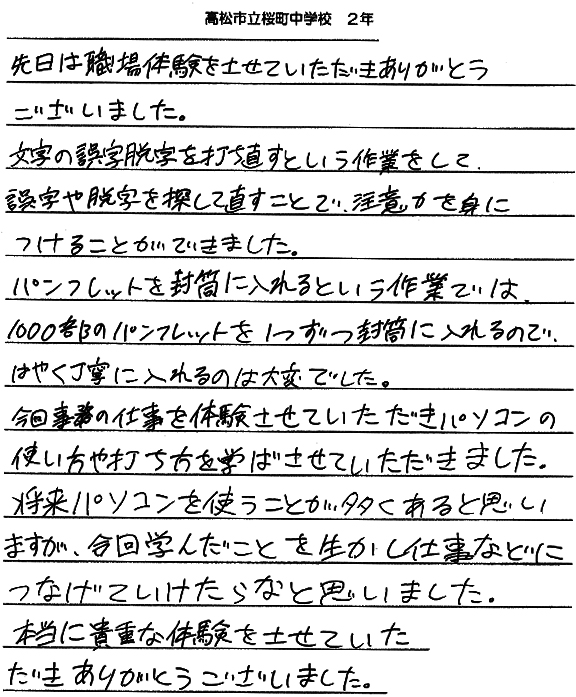 高松市立桜町中学校 2年
先日は職場体験をさせていただきありがとう
ございました。
文字の誤字脱字を打ち直すという作業をして、
誤字や脱字を探して直すことで、注意力を身に
つけることができました。
パンフレットを封筒に入れるという作業では、
1000部のパンフレットを1つずつ封筒に入れるので、
はやく丁寧に入れるのは大変でした。
今回事務の仕事を体験させていただきパソコンの
使い方や打ち方を学ばさせていただきました。
将来パソコンを使うことが多くあると思い
ますが、今回学んだことを生かし仕事などに
つなげていけたらなと思いました。
本当に貴重な体験をさせていた
だきありがとうございました。